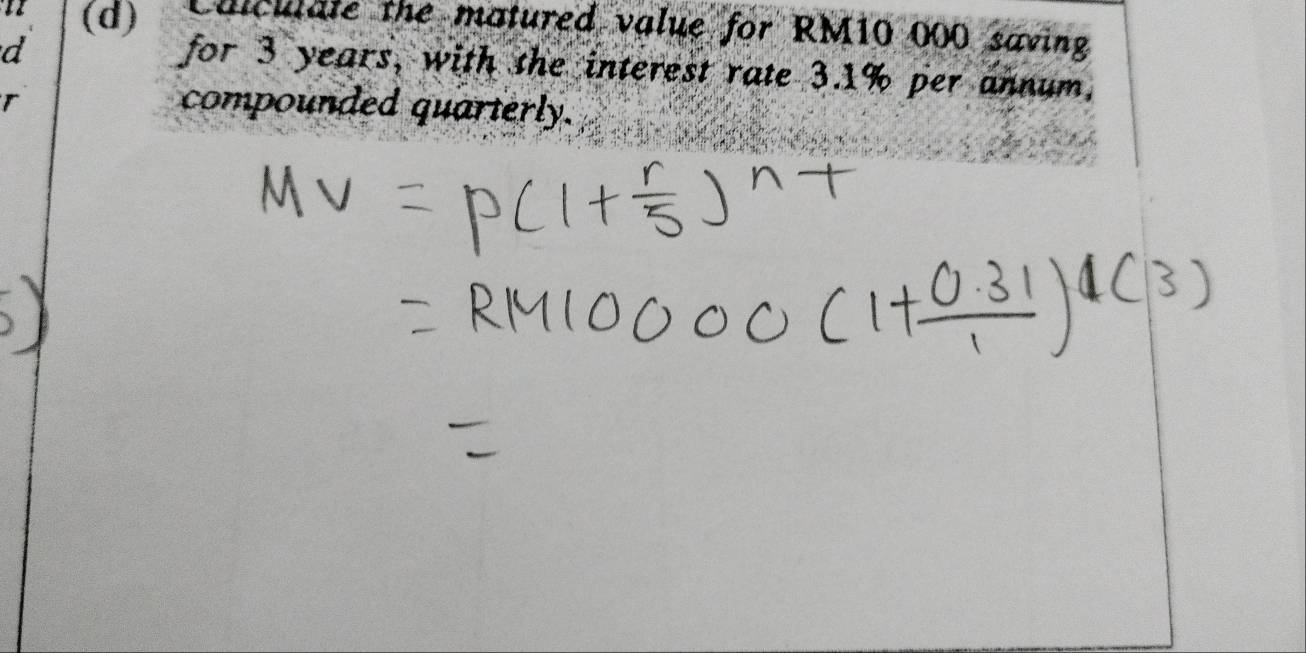 (d) Calculate the matured value for RM10 000 saving
d for 3 years, with the interest rate 3.1% per annum,
r compounded quarterly.
MV = P(1+r/5)^nt
5) = RM10000(1+0.31/1)^1(3)
=